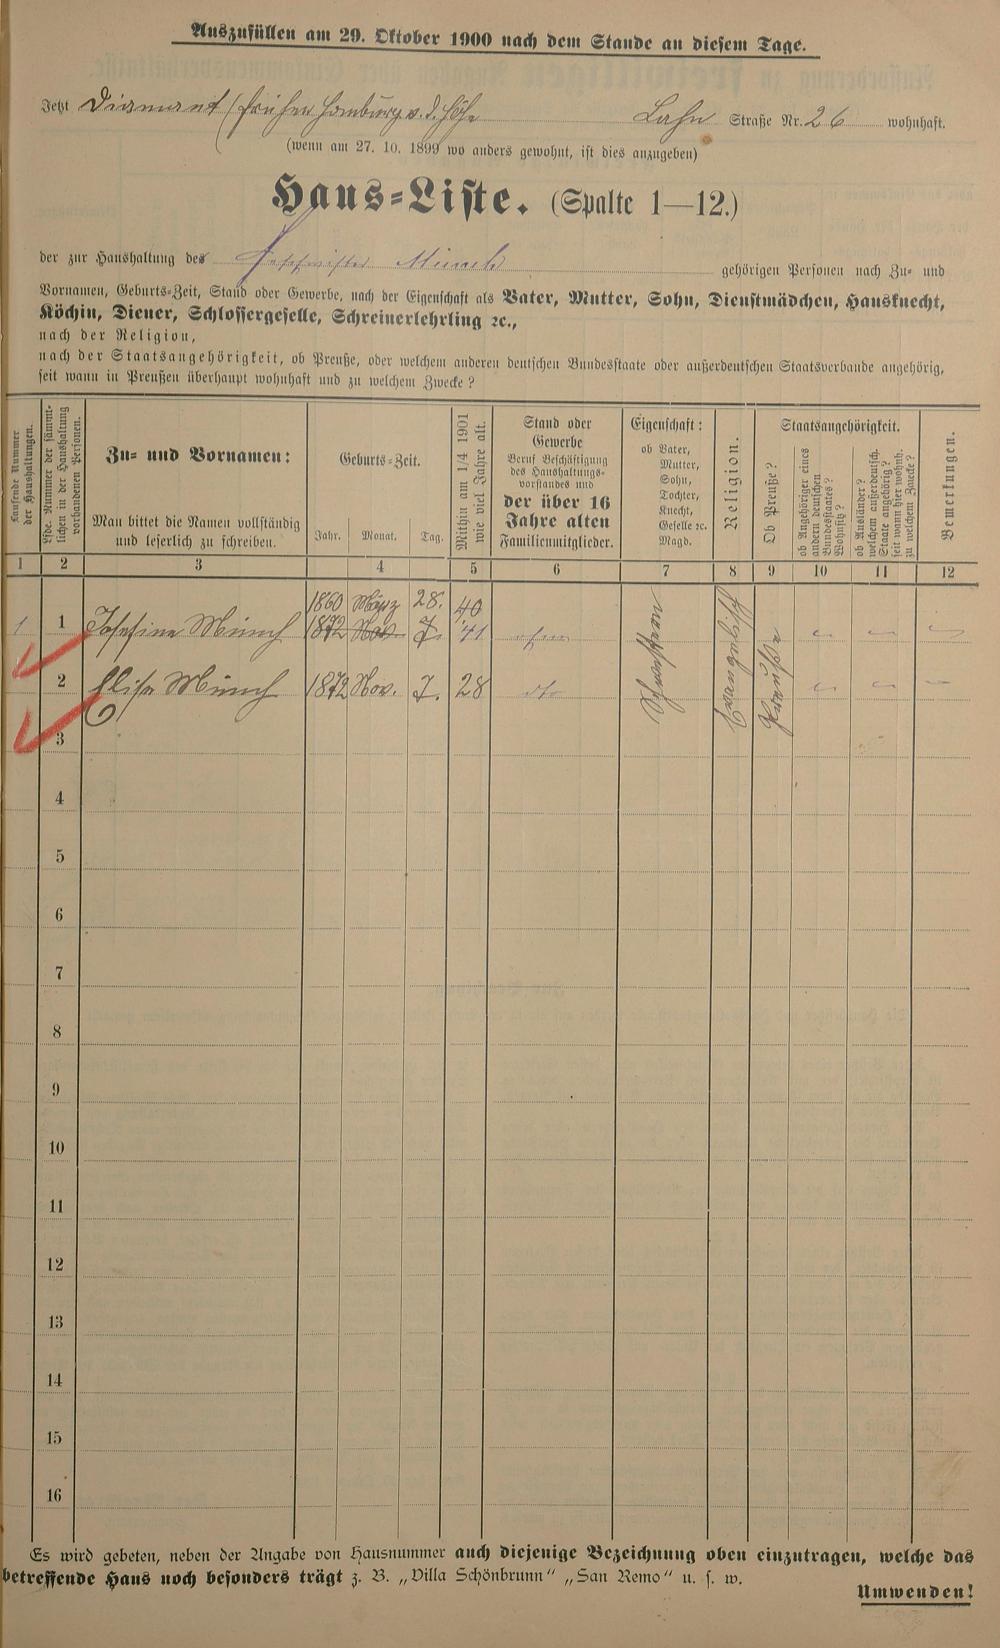 Auszufüllen am 29. Oktober 1900 nach dem Stande an diesem Tage.
Jetzt Diamant (früher Homburg v. d. Höhe Lahn Straße Nr. 26 wohnhaft.
(wenn am 27. 10. 1899 wo anders gewohnt, ist dies anzugeben)
Haus-Liste. (Spalte 1—12.)
der zur Haushaltung des Geschwister Münch gehörigen Personen nach Zu- und
Vornamen, Geburts-Zeit, Stand oder Gewerbe, nach der Eigenschaft als Vater, Mutter, Sohn, Dienstmädchen, Hausknecht,
Köchin, Diener, Schlossergeselle, Schreinerlehrling ꝛc.,
nach der Religion,
nach der Staatsangehörigkeit, ob Preuße, oder welchem anderen deutschen Bundesstaate oder außerdeutschen Staatsverbande angehörig,
seit wann in Preußen überhaupt wohnhaft und zu welchem Zwecke?
Laufende Nummer
der Haushaltungen.
Lfde. Nummer der sämmt-
lichen in der Haushaltung
vorhandenen Personen.
Zu- und Vornamen:
Man bittet die Namen vollständig
und leserlich zu schreiben.
Geburts-Zeit.
Jahr. Monat. Tag.
Mithin am 1/4 1901
wie viel Jahre alt.
Stand oder
Gewerbe
Beruf Beschäftigung
des Haushaltungs-
vorstandes und
der über 16
Jahre alten
Familienmitglieder.
Eigenschaft:
ob Vater,
Mutter,
Sohn,
Tochter,
Knecht,
Geselle ꝛc.
Magd.
Religion.
Staatsangehörigkeit.
Ob Preuße?
ob Angehöriger eines
andern deutschen
Bundesstaates?
Wohnsitz?
ob Ausländer?
welchem außerdeutsch.
Staate angehörig?
seit wann hier wohnh.
zu welchem Zwecke?
Bemerkungen.
1 2 3 4 5 6 7 8 9 10 11 12
1860 März 28. 40
1 1 Josefine Münch 1872 Nov. 7. 41 ohne Schwestern Evangelisch Preuße
2 Elise Münch 1872 Nov. 7. 28 dto
3
4
5
6
7
8
9
10
11
12
13
14
15
16
Es wird gebeten, neben der Angabe von Hausnummer auch diejenige Bezeichnung oben einzutragen, welche das
betreffende Haus noch besonders trägt z. B. „Villa Schönbrunn“ „San Remo“ u. s. w.
Umwenden!